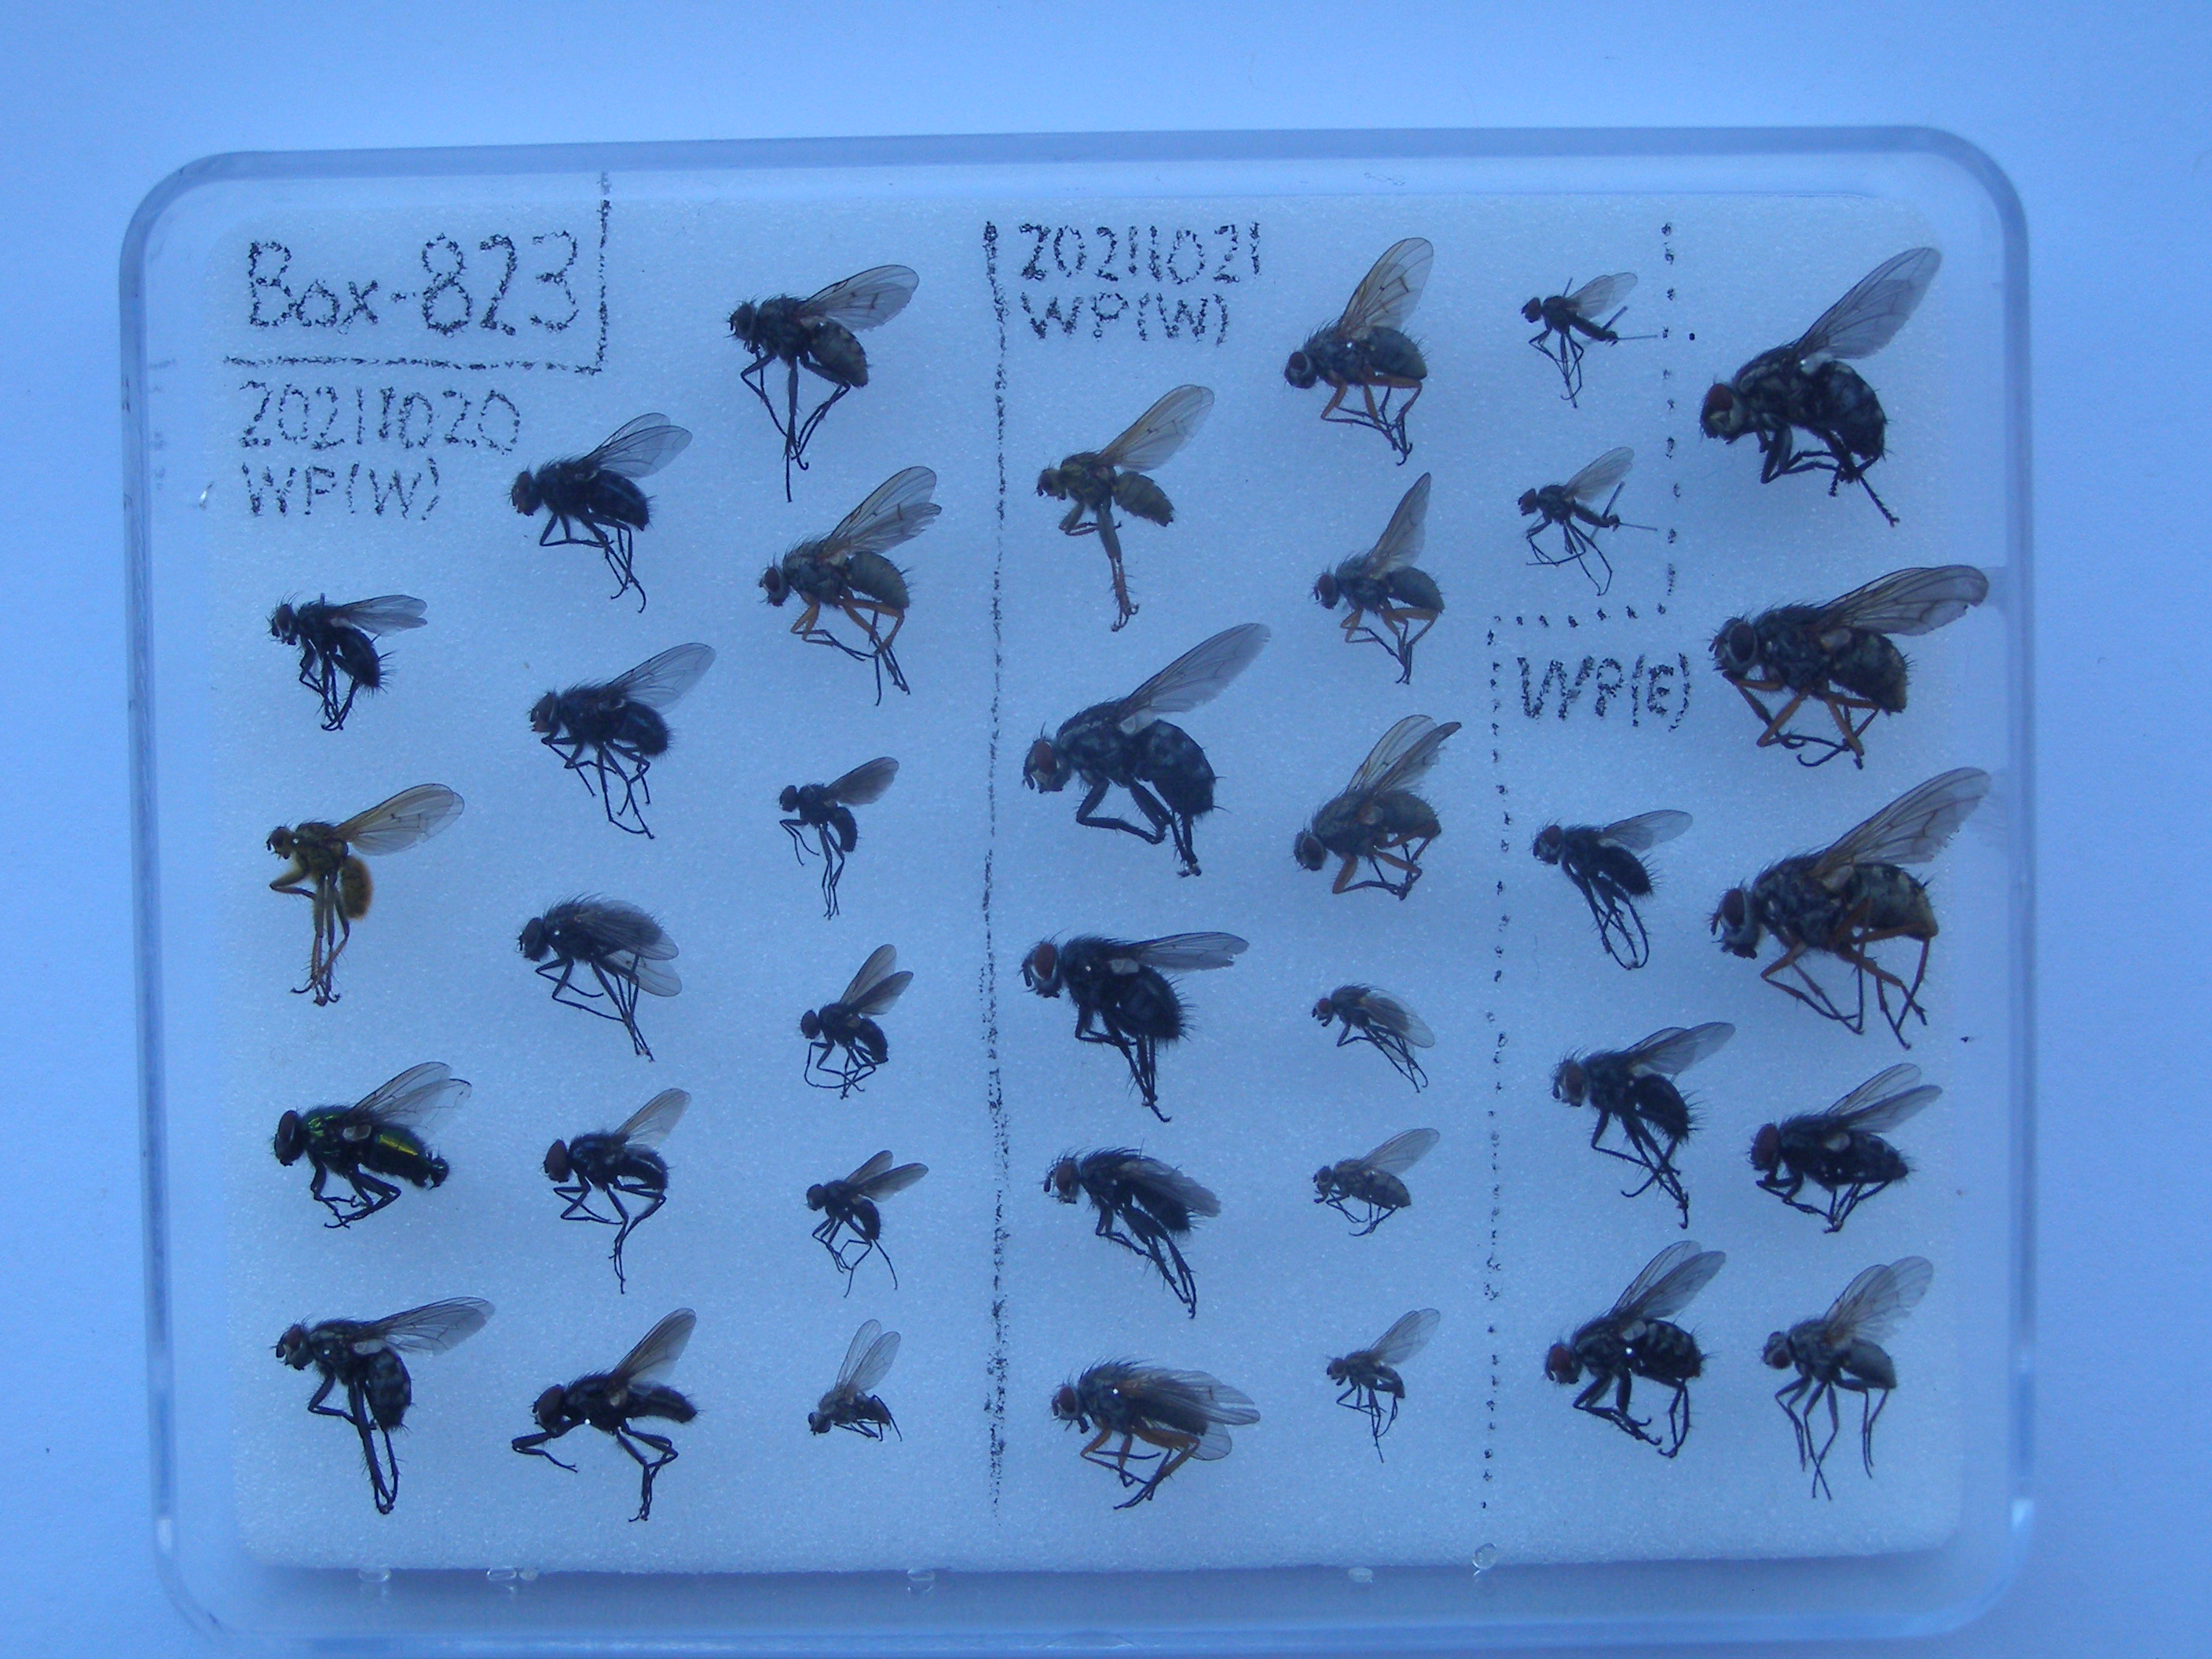 Box-823
20211020
WP(W)
20211021
WP(W)
WP(E)